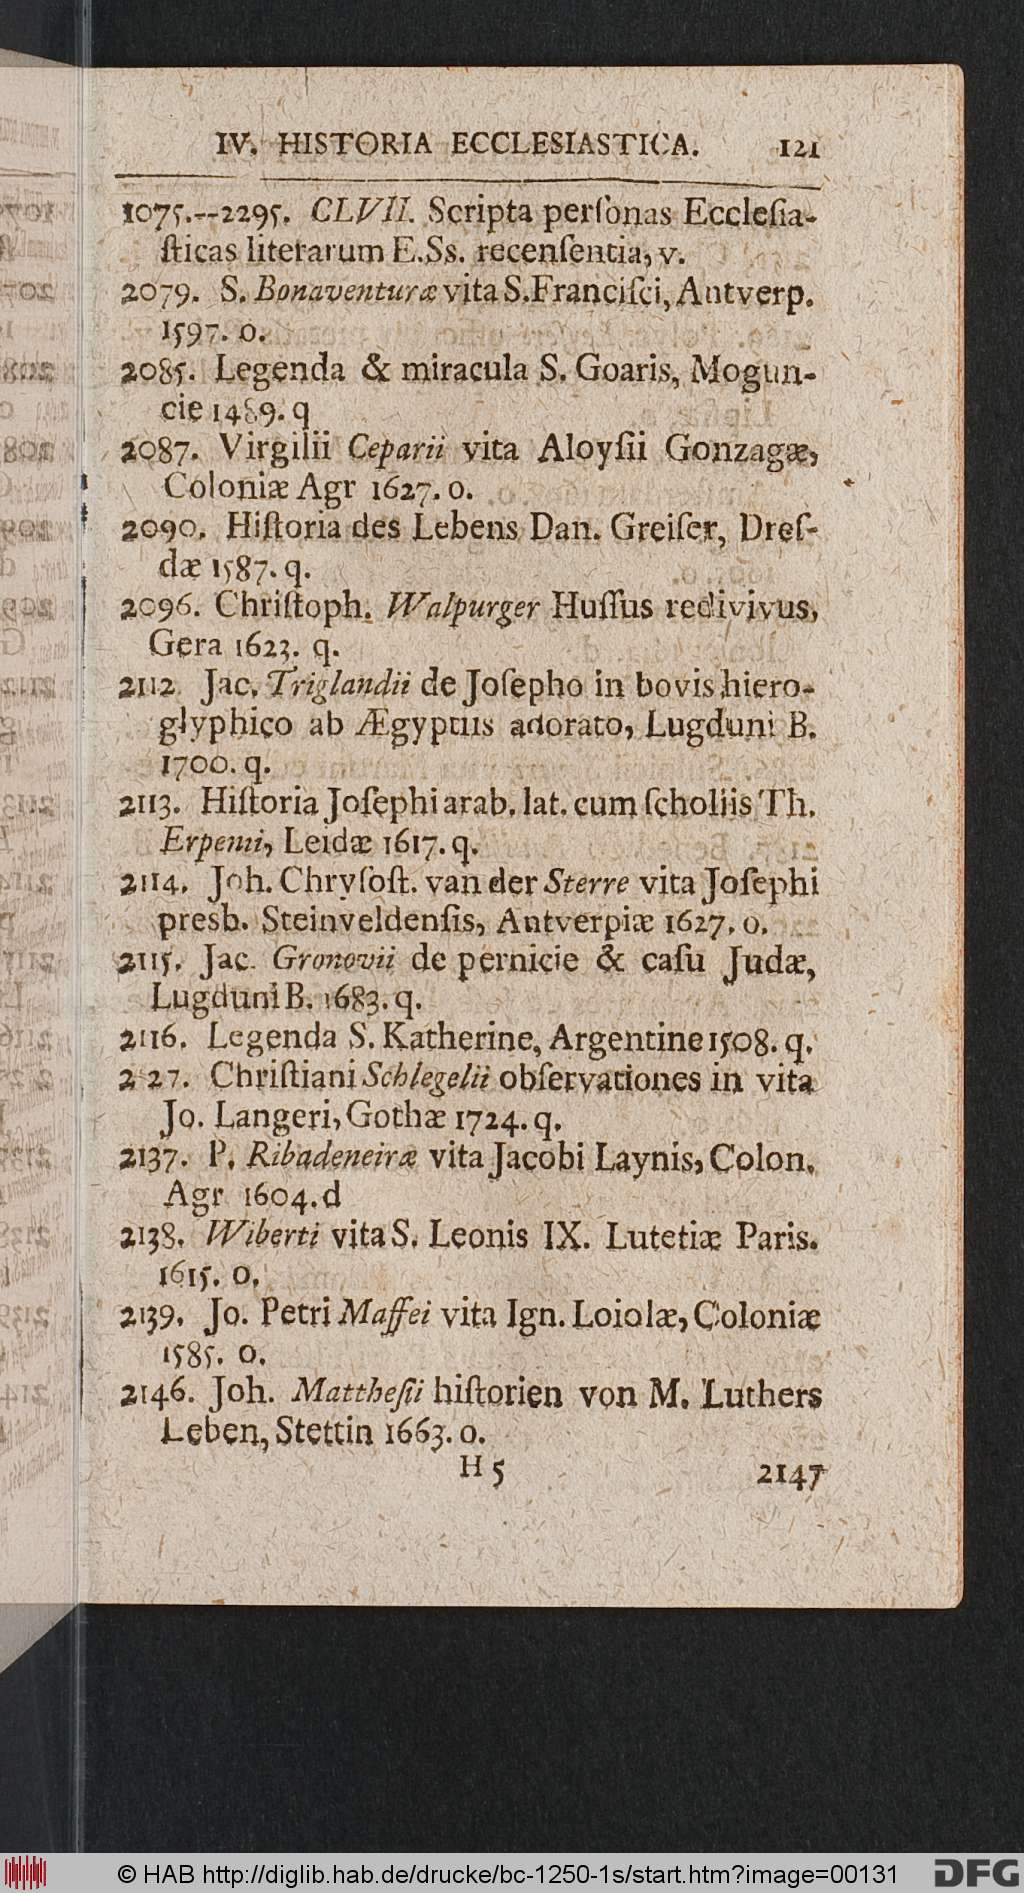 IV. HISTORIA ECCLESIASTICA. 121
1075.--2295. CLVII. Scripta perſonas Eccleſia-
ſticas literarum E.Ss. recenſentia, v.
2079. S. Bonaventuræ vita S. Franciſci, Antverp.
1597. o.
2085. Legenda & miracula S. Goaris, Mogun-
cie 1489. q
2087. Virgilii Ceparii vita Aloyſii Gonzagæ,
Coloniæ Agr 1627. o.
2090. Hiſtoria des Lebens Dan. Greiſer, Dreſ-
dæ 1587. q.
2096. Chriſtoph. Walpurger Huſſus redivivus,
Gera 1623. q.
2112. Jac. Triglandii de Joſepho in bovis hiero-
glyphico ab Ægyptiis adorato, Lugduni B.
1700. q.
2113. Hiſtoria Joſephi arab. lat. cum ſcholiis Th.
Erpenii, Leidæ 1617. q.
2114. Joh. Chryſoſt. van der Sterre vita Joſephi
presb. Steinveldenſis, Antverpiæ 1627. o.
2115. Jac. Gronovii de pernicie & caſu Judæ,
Lugduni B. 1683. q.
2116. Legenda S. Katherine, Argentine 1508. q.
2127. Chriſtiani Schlegelii obſervationes in vita
Jo. Langeri, Gothæ 1724. q.
2137. P. Ribadeneiræ vita Jacobi Laynis, Colon.
Agr 1604. d
2138. Wiberti vita S. Leonis IX. Lutetiæ Paris.
1615. o.
2139. Jo. Petri Maffei vita Ign. Loiolæ, Coloniæ
1585. o.
2146. Joh. Mattheſii hiſtorien von M. Luthers
Leben, Stettin 1663. o.
H 5 2147
© HAB http://diglib.hab.de/drucke/bc-1250-1s/start.htm?image=00131 DFG